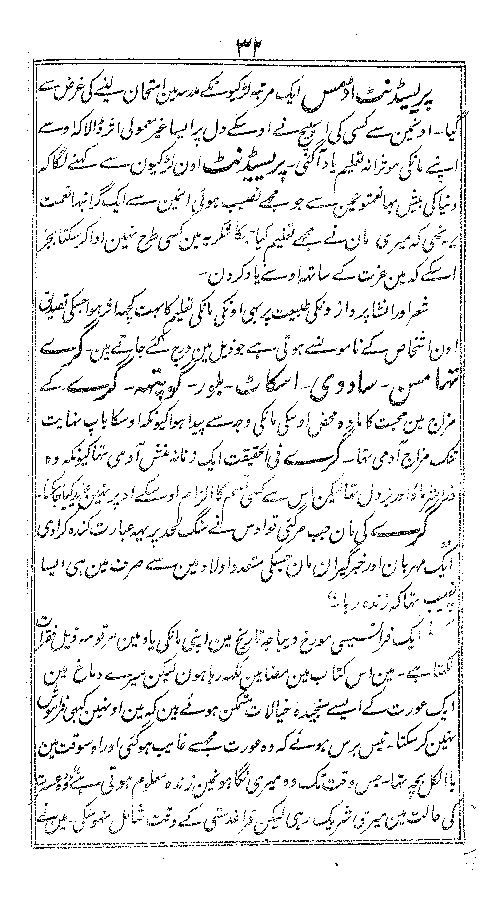 ۳۲
پریسیڈنٹ اڈمس ایک مرتبہ لڑکیونکے مدرسہ مین امتحان لینے کی غرض سے
گیا۔ اونمین سے کسی کی اسپیچ نے اوسکے دل پر ایسا غیر معمولی اثر ڈالا کہ اوسے
اپنے مانکی موثرانہ تعلیم یاد آگئی۔ پریسیڈنٹ اون لڑکیون سے کہنے لگا کہ
دنیا کی بیش بہا نعمتونمین سے جو مجھے نصیب ہوئی انمین سے ایک گرانبہا نعمت
یہ تھی کہ میری مان نے مجھے تعلیم کیا جسکا شکریہ مین کسی طرح نہین ادا کرسکتا بجز
اسکے کہ مین عزت کے ساتھ اوسے یاد کردن۔
شعر اور انشا پردازونکی طبیعت پر بہی اونکی مانکی تعلیم کا بہت کچھ اثر ہوا جسکی تصدیق
اون اشخاص کے نامونسے ہوتی ہے جو ذیل مین درج کئے جاتے ہین۔ گرے
تہامسن۔ ساودی۔ اسکاٹ۔ بلور۔ گویتھ۔ گرے کے
مزاج مین محبت کا مادہ محض اوسکی مانکی وجہ سے پیدا ہوا کیونکہ اوسکا باپ نہایت
تنک مزاج آدمی تہا۔ گرے فی الحقیقت ایک زنانہ منش آدمی تہا کیونکہ وہ
اور بزدل تہا لیکن اس سے کسی قسم کا الزام اوسکے اوپر نہین
گرے کی مان جب مرگئی تو اوسنے سنگ لحد پر یہہ عبارت کندہ کرادی
ایک مہربان اور خبرگیران مان جسکی متعدد اولاد مین سے صرف مین ہی ایسا
نصیب تہا کہ زندہ رہا۔
ایک فرانسیسی مورخ دیباچہ تاریخ مین اپنی مانکی یاد مین مرقومہ ذیل فقرات
لکہتا ہے۔ مین اس کتاب مین مضامین لکھ رہا ہون لیکن میرے دماغ مین
ایک عورت کے ایسے سنجیدہ خیالات متمکن ہوئے ہین کہ مین اونہین کبہی فراموش
نہین کرسکتا۔ تیس برس ہوئے کہ وہ عورت مجھسے غایب ہوگئی اور اوسوقت مین
بالکل بچہ تہا۔ جس وقت تک وہ میری نگاہونمین زندہ معلوم ہوتی ہے وہ
کی حالت مین میری شریک رہی لیکن فراغدستی کے وقت شامل نہوسکی۔ مین نے